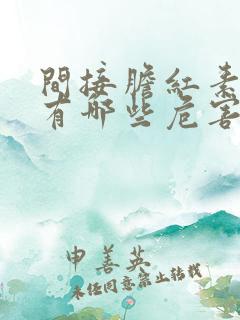 間接膽紅素
有哪些危害
申善英
未经同意禁止转载